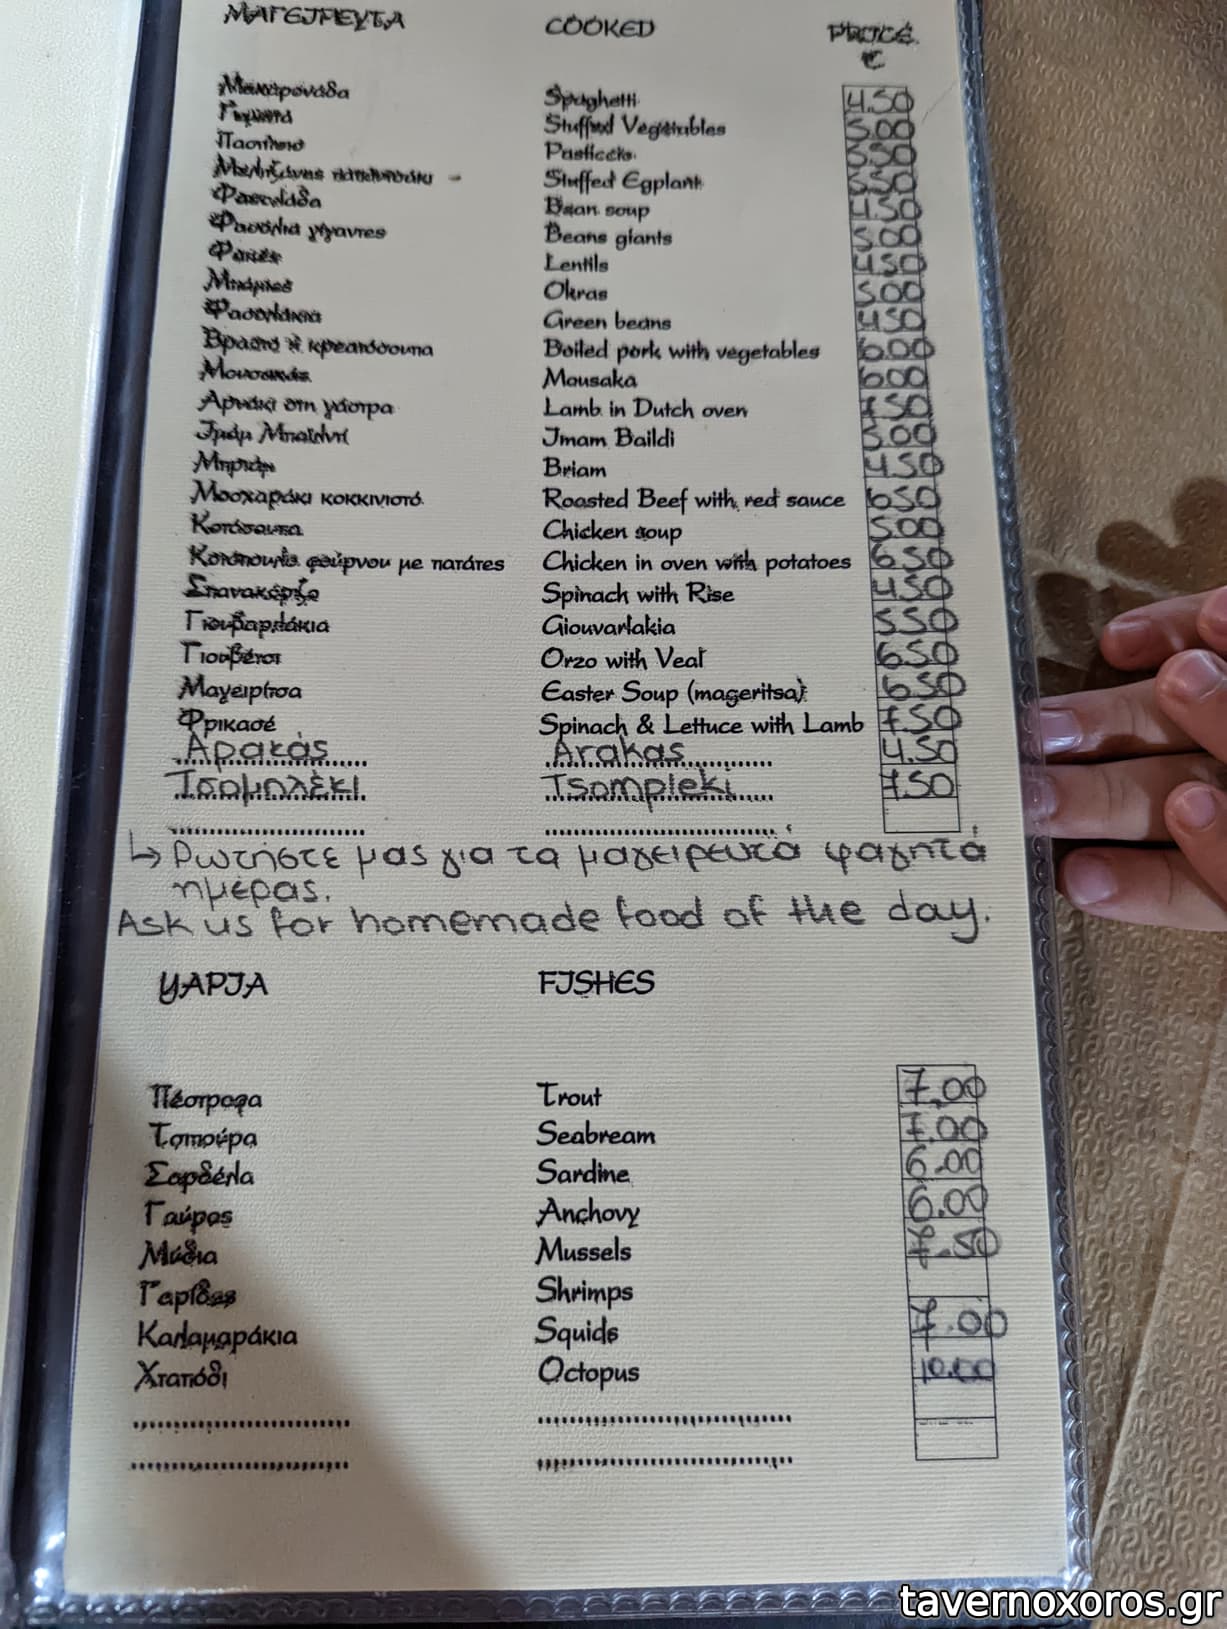 ΜΑΓΕΙΡΕΥΤΑ COOKED PRICE €
Μακαρονάδα Spaghetti 4.50
Γεμιστά Stuffed Vegetables 5.00
Παστίτσιο Pasticcio 5.50
Μελιτζάνες παπουτσάκι Stuffed Egplant 5.50
Φασολάδα Bean soup 4.50
Φασόλια γίγαντες Beans giants 5.00
Φακές Lentils 4.50
Μπάμιες Okras 5.00
Φασολάκια Green beans 4.50
Βραστό ή κρεατόσουπα Boiled pork with vegetables 6.00
Μουσακάς Mousaka 6.00
Αρνάκι στη γάστρα Lamb in Dutch oven 7.50
Ιμάμ Μπαϊλντί Imam Baildi 5.00
Μπριάμ Briam 4.50
Μοσχαράκι κοκκινιστό Roasted Beef with red sauce 6.50
Κοτόσουπα Chicken soup 5.00
Κοτόπουλο φούρνου με πατάτες Chicken in oven with potatoes 6.50
Σπανακόρυζο Spinach with Rise 4.50
Γιουβαρλάκια Giouvarlakia 5.50
Γιουβέτσι Orzo with Veal 6.50
Μαγειρίτσα Easter Soup (mageritsa) 6.50
Φρικασέ Spinach & Lettuce with Lamb 7.50
Αρακάς Arakas 4.50
Τσομπλέκι Tsompleki 7.50
↳ Ρωτήστε μας για τα μαγειρευτά φαγητά
ημέρας.
Ask us for homemade food of the day.
ΨΑΡΙΑ FISHES
Πέστροφα Trout 7.00
Τσιπούρα Seabream 7.00
Σαρδέλα Sardine 6.00
Γαύρος Anchovy 6.00
Μύδια Mussels 7.50
Γαρίδες Shrimps
Καλαμαράκια Squids 7.00
Χταπόδι Octopus 10.00
tavernoxoros.gr